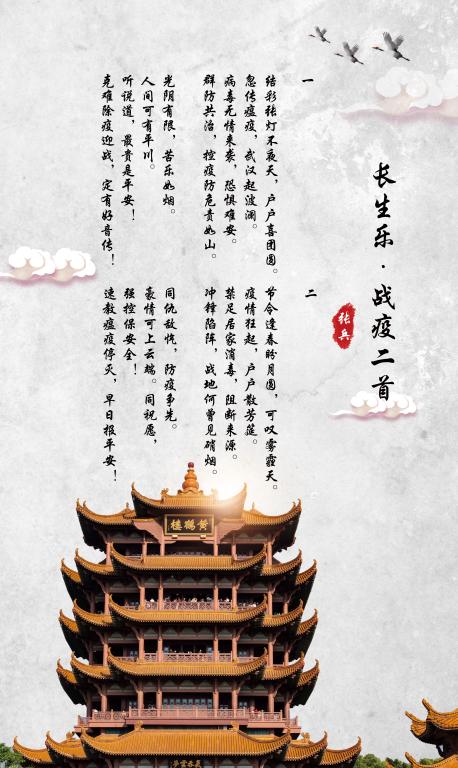 长生乐·战疫二首
张兵
一
结彩张灯不夜天，户户喜团圆。
忽传瘟疫，武汉起波澜。
病毒无情来袭，恐惧难安。
群防共治，控疫防危贵如山。
光阴有限，苦乐如烟。
人间可有平川。
听说道，最贵是平安！
克难除疫迎战，定有好音传！
二
节令逢春盼月圆，可叹雾霾天。
疫情狂起，户户散芳莚。
禁足居家消毒，阻断来源。
冲锋陷阵，战地何曾见硝烟。
同仇敌忾，防疫争先。
豪情可上云端。同祝愿，
强控保安全！
速教瘟疫停灭，早日报平安！
黄鹤楼